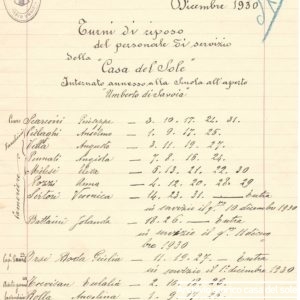 Dicembre 1930
Turni di riposo
del personale di servizio
della "Casa del Sole"
Internato annesso alla Scuola all'aperto
"Umberto di Savoia"
Giuseppe — 3. 10. 17. 24. 31.
Anselmo — 1. 9. 17. 25.
Villa Augusta — 3. 11. 19. 27.
Pennati Angiola — 7. 8. 16. 24.
— 5. 13. 21. 22. 30
Pozzi Anna — 4. 12. 20. 28. 29
Sertori Veronica — 14. 23. 31. — Entra
in servizio il gno 10 dicembre 1930
Battaini Jolanda — 18. 26. — Entra
in servizio il
1930
Orsi — 11. 19. 27. — Entra
in servizio il 1° dicembre 1930
Trevisan Eulalia — 2. 10.
Rolla Angelina — 1. 9. 17. 25.